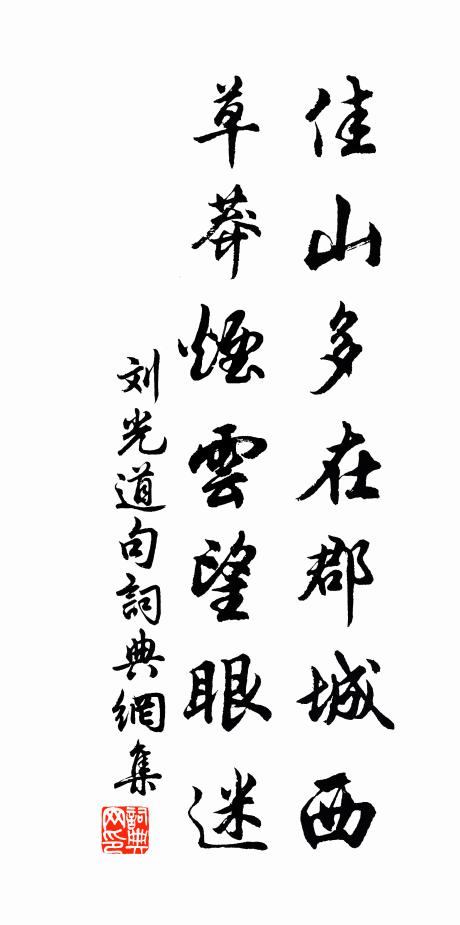 佳山多在郡城西
草莽煙雲望眼迷
刘光道句詞典網集
詞典網印